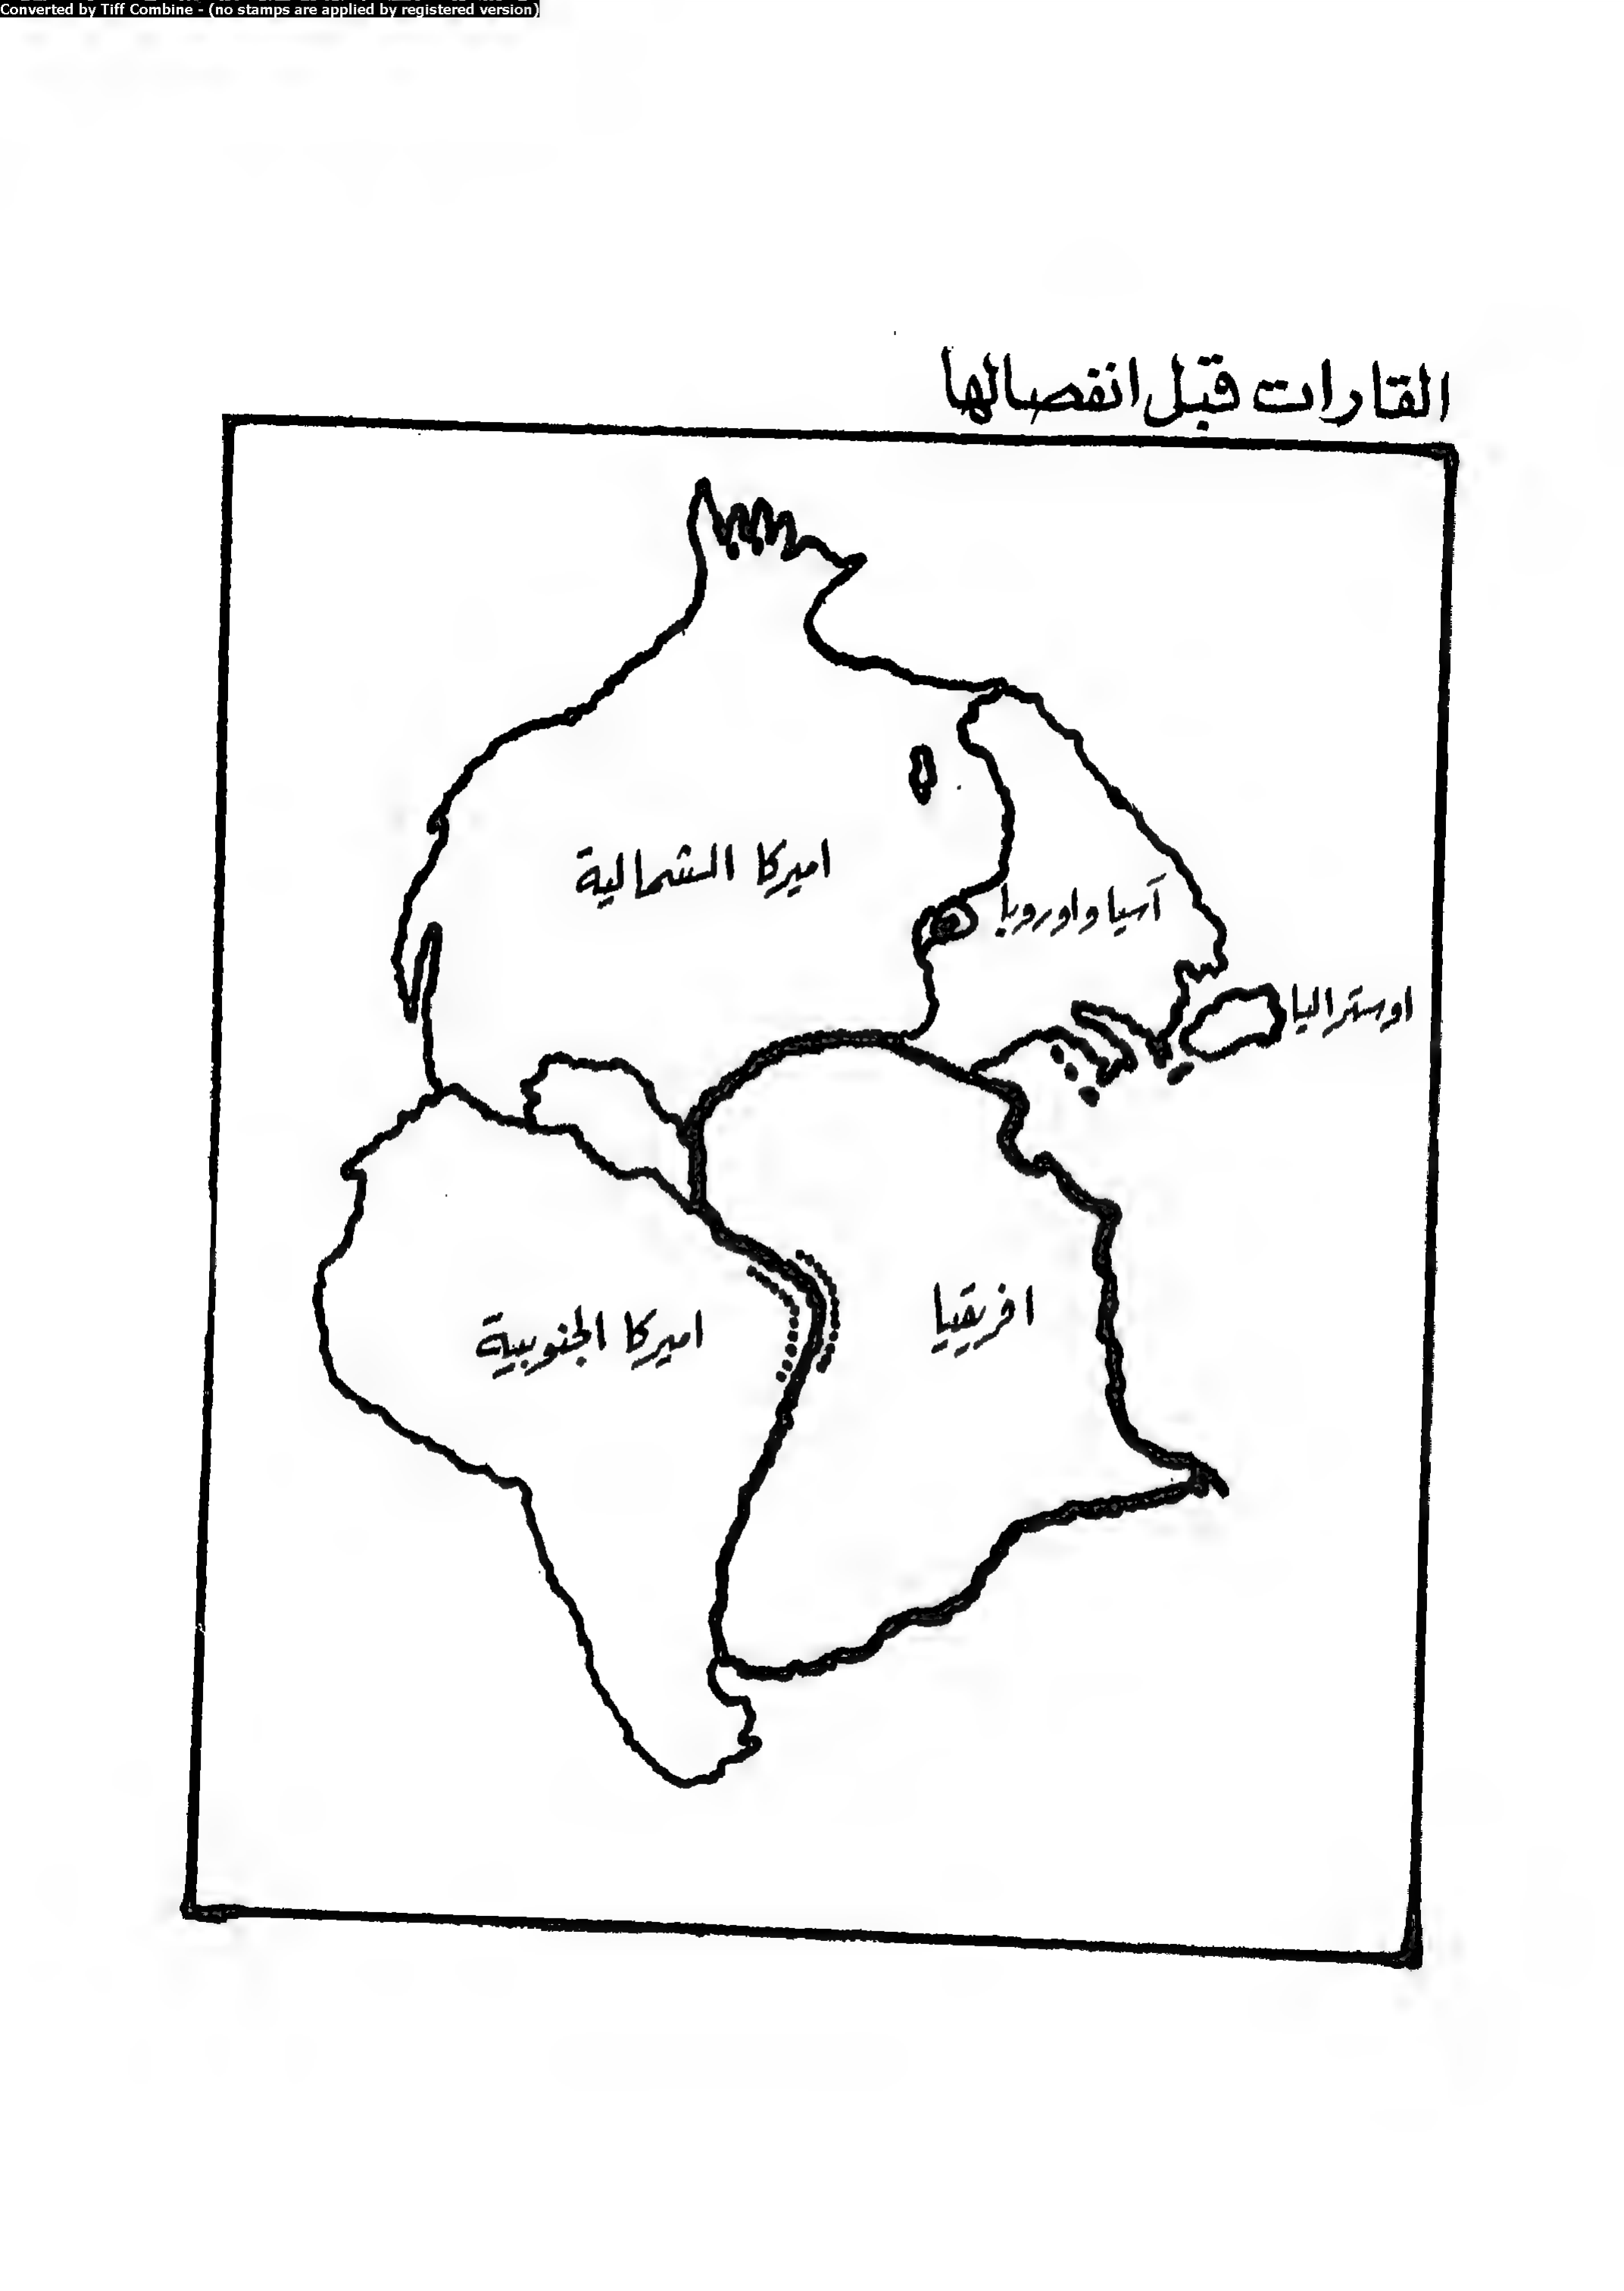 Converted by Tiff Combine - (no stamps are applied by registered version)
القارات قبل انفصالها
اميركا الشمالية
آسيا واوروبا
اوستراليا
افريقيا
اميركا الجنوبية